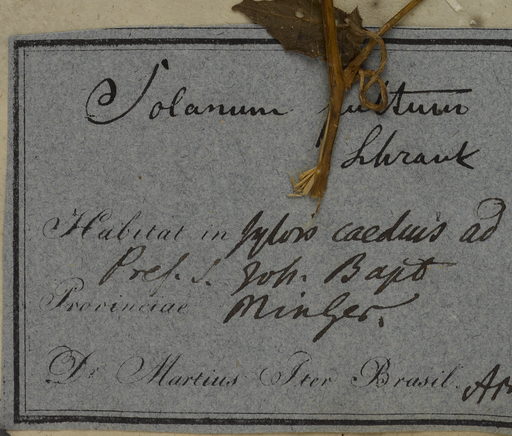 Solanum
Schrank
Habitat in sylvis caeduis ad
Praes. S. Joh. Bapt
Provinciae Min Ger.
Dr. Martius Iter Brasil.